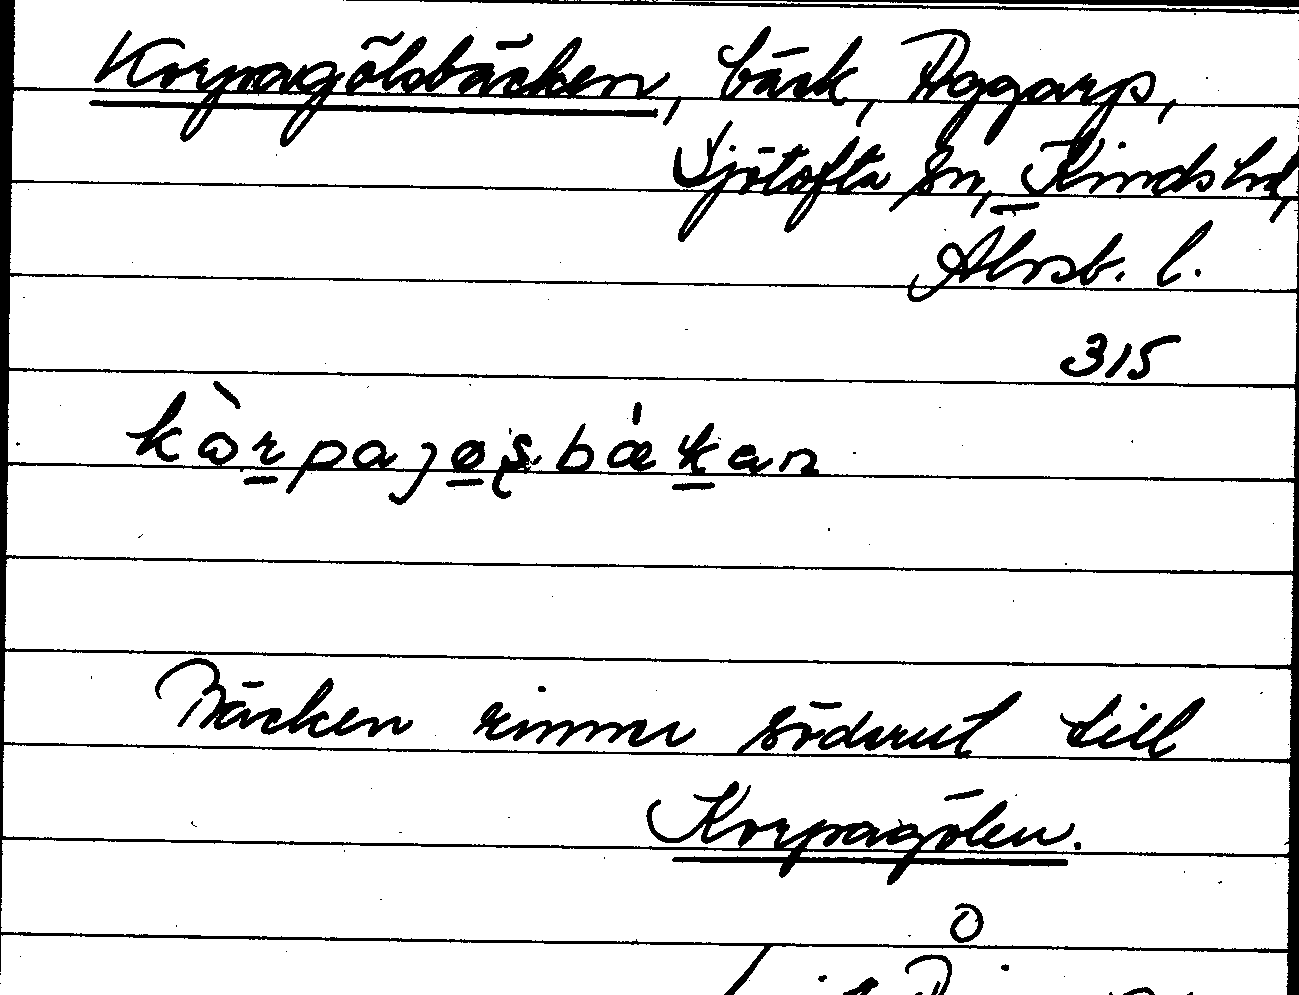 Korpagölsbäcken, bäck, Aggarp,
Sjötofta sn, Kinds hd,
Älvsb. l.
315
kòrpajøṣbǽkan
Bäcken rinner söderut till
Korpagölen.